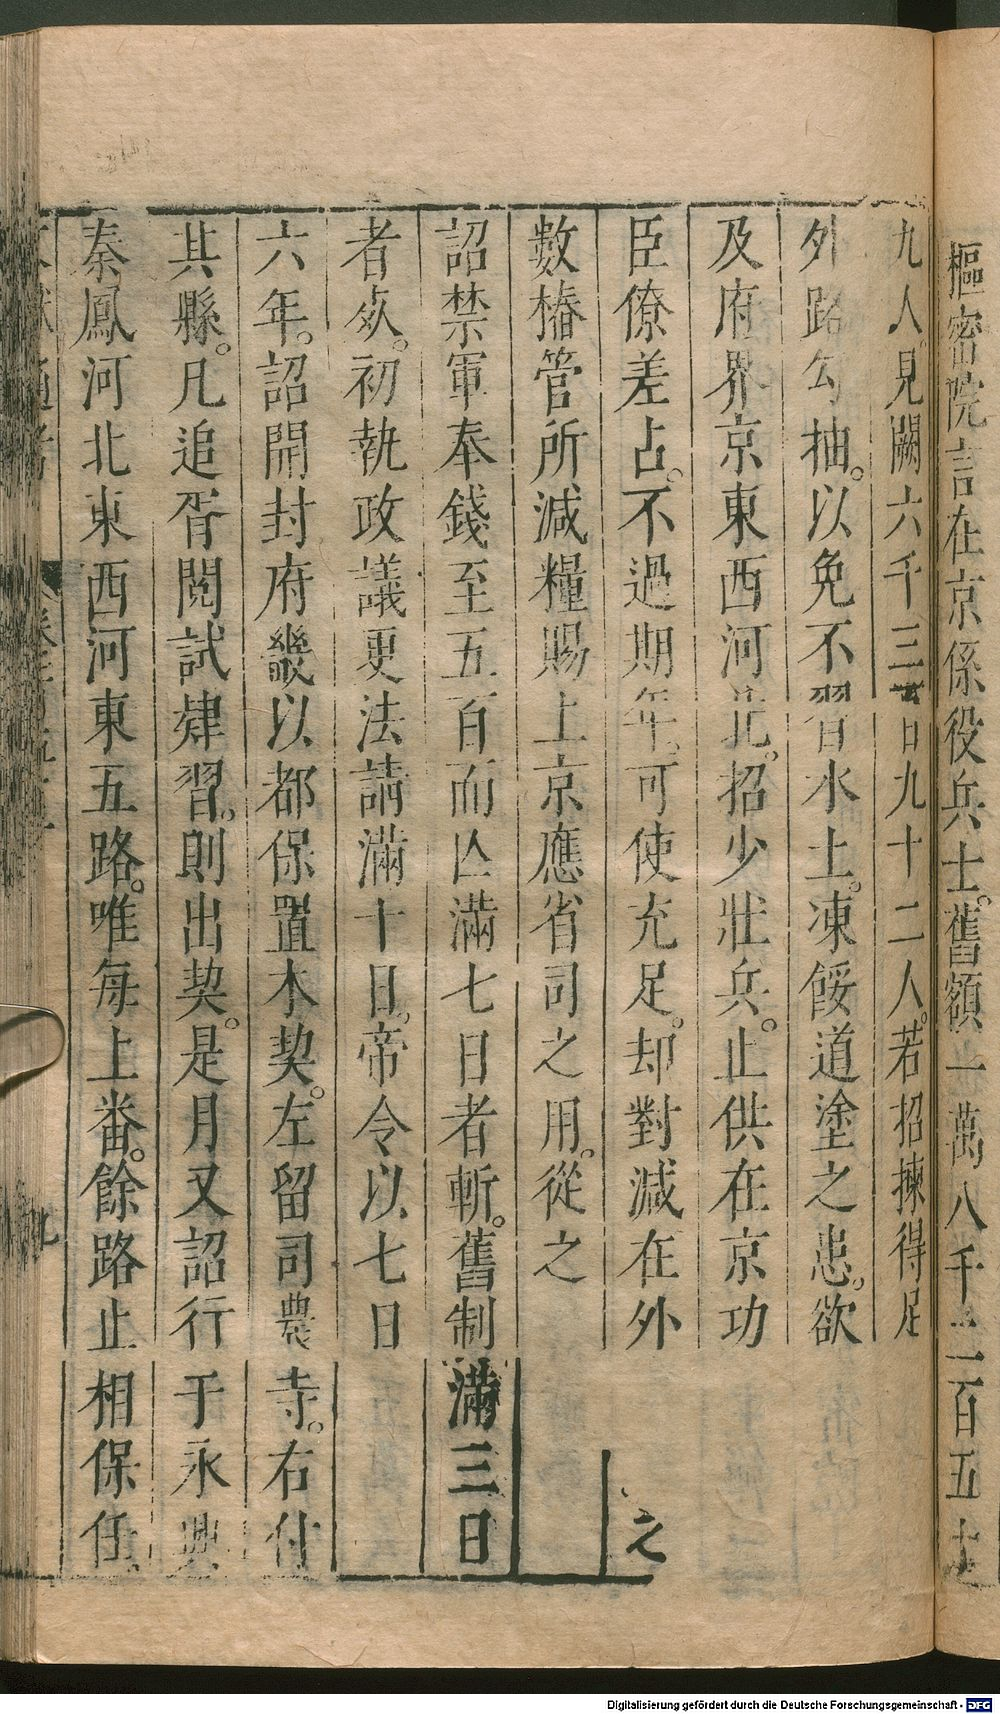 樞密院言在京係役兵士。舊額一萬八千二百五十
九人。見闕六千三百九十二人。若招揀得足
外路勾抽。以免不習水土。凍餒道塗之患。欲
及府界京東西河北。招少壯兵。止供在京功
臣僚差占。不過期年。可使充足。却對減在外之
數樁管所減糧賜上京應省司之用。從之
詔禁軍奉錢至五百而亾滿七日者斬。舊制滿三日
者㱙。初執政議更法請滿十日。帝令以七日
六年。詔開封府畿以都保置木契。左留司農寺。右付
其縣。凡追胥閲試肄習。則出契。是月又詔行于永興
秦鳳河北東西河東五路。唯每上番。餘路止相保任
九
Digitalisierung gefördert durch die Deutsche Forschungsgemeinschaft - DFG